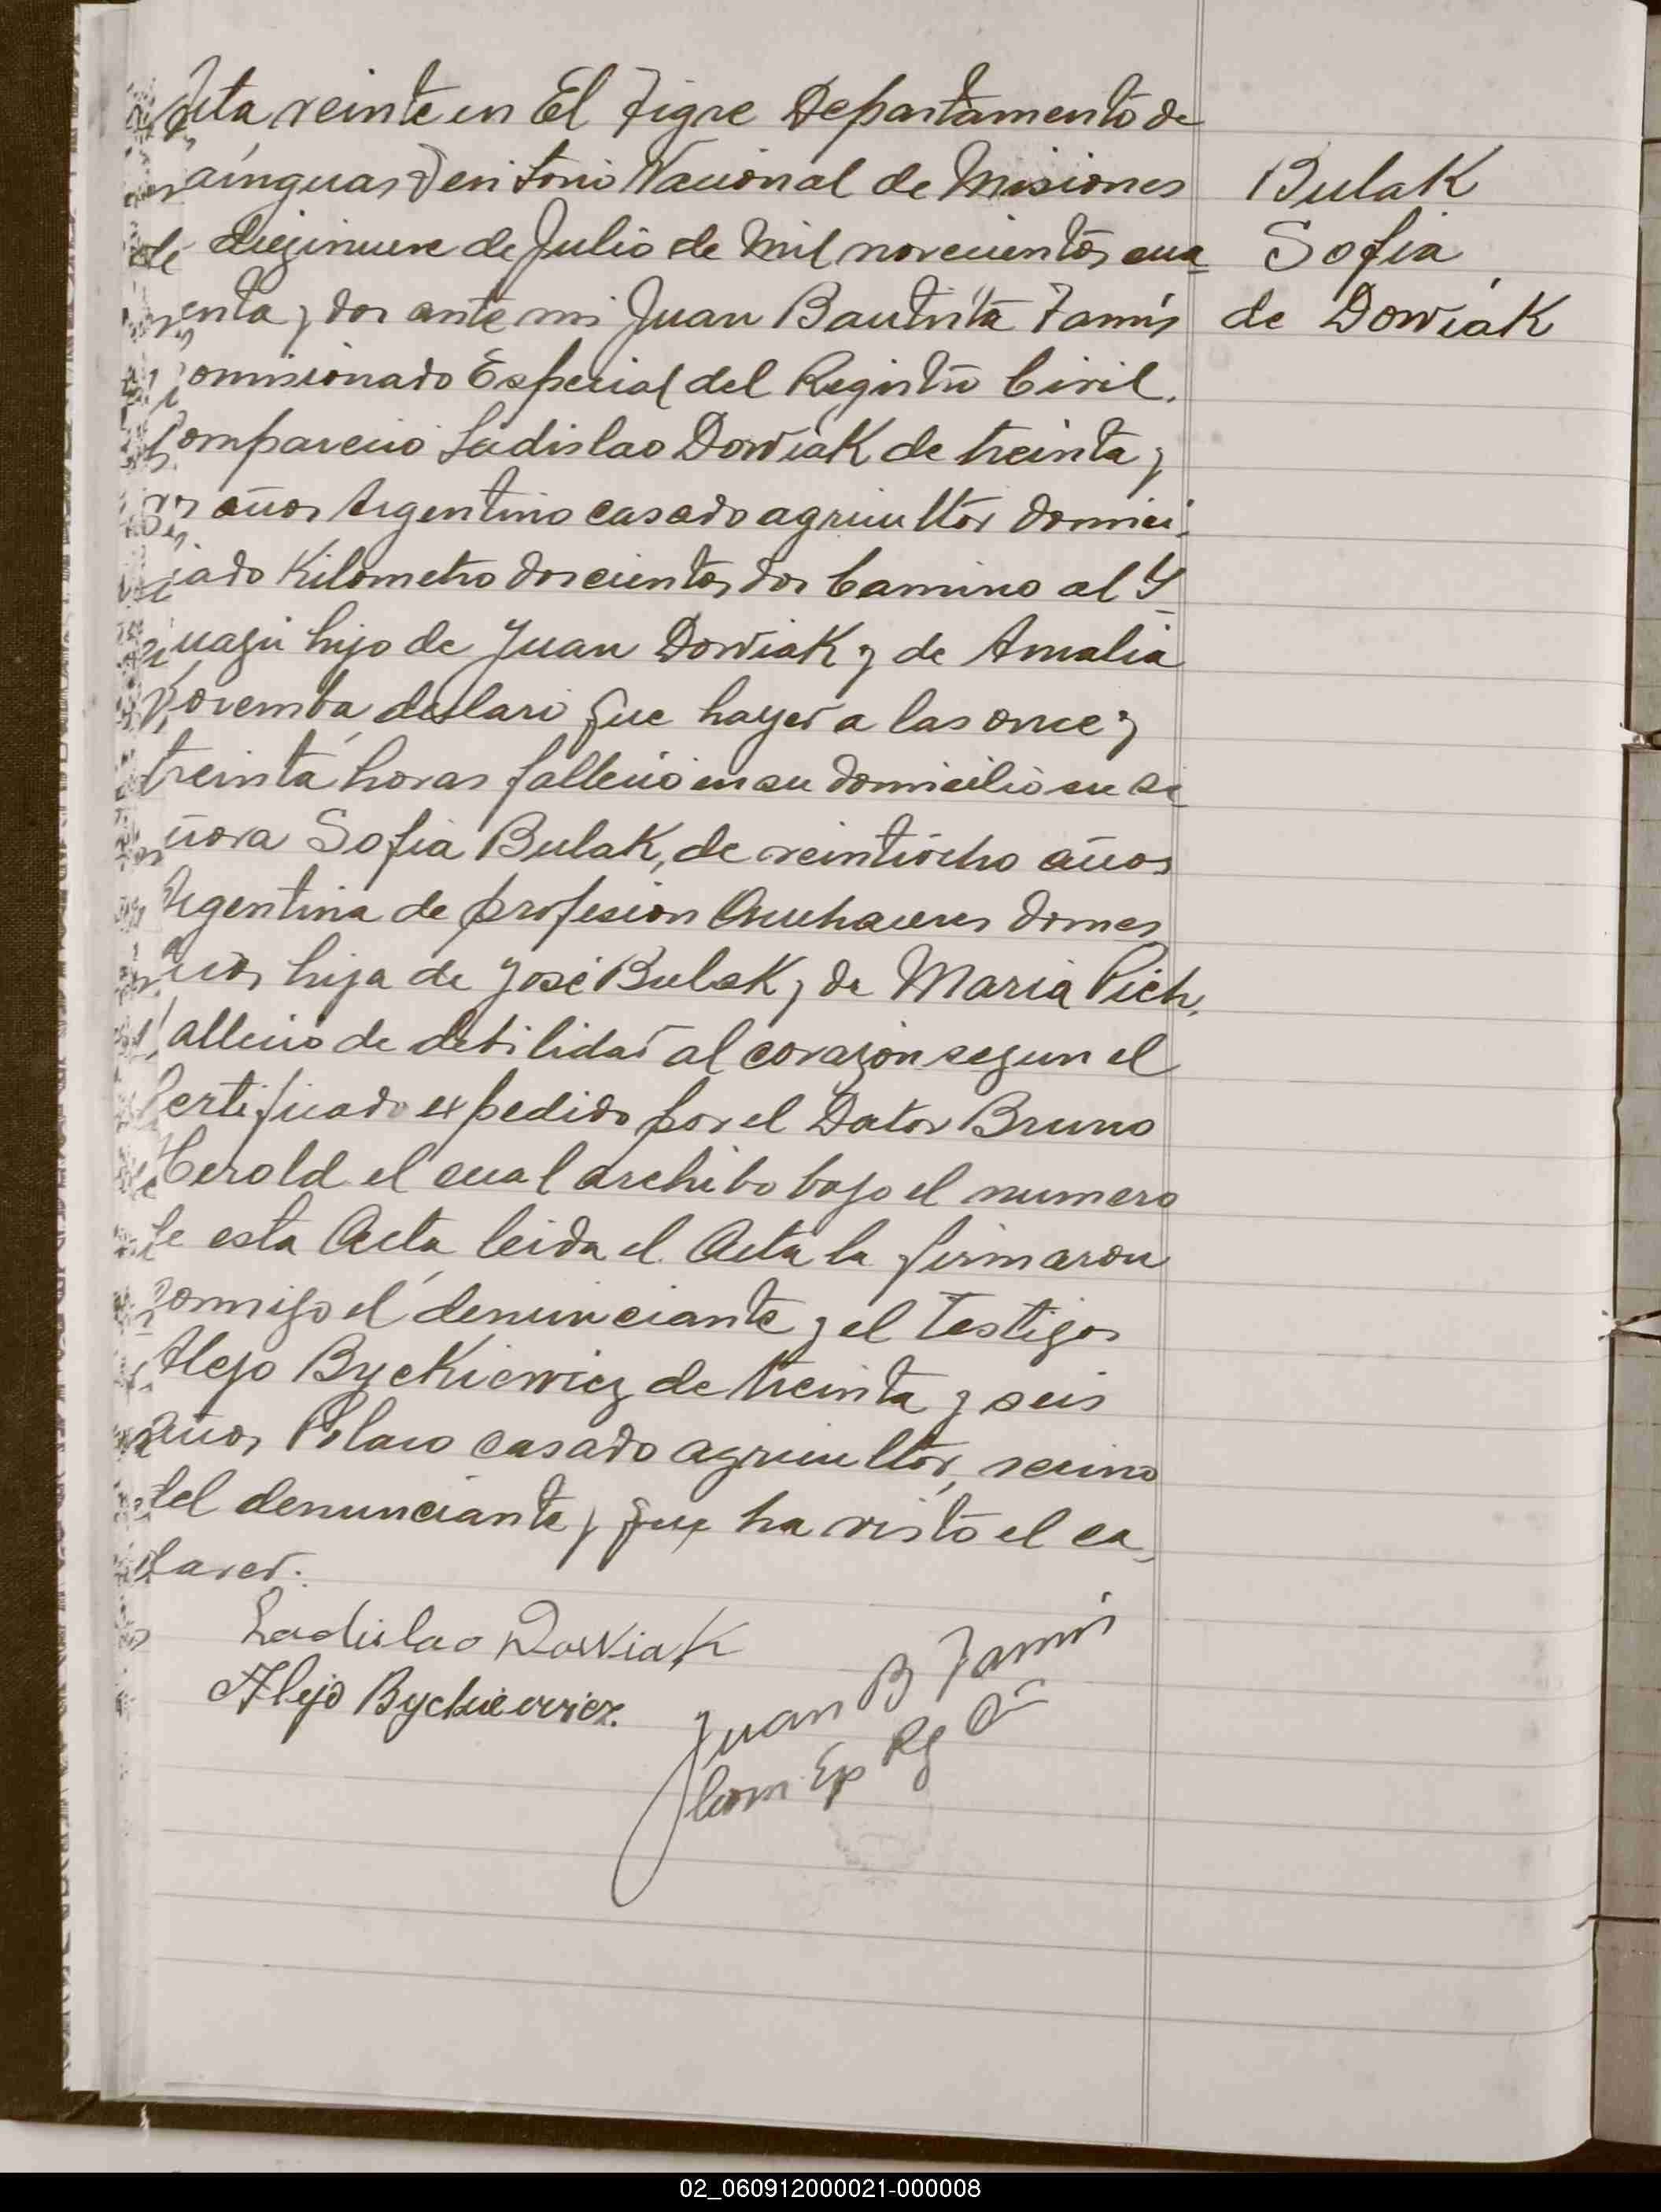 Acta veinte en El Tigre Departamento de
Caínguas Territorio Nacional de Misiones
diezinueve de Julio de Mil novecientos cua
renta y dos ante mi Juan Bautista
Comisionado Especial del Registro Civil.
Comparecio Ladislao Dowiak de treinta y
años Argentino casado agricultor domici
liado Kilometro doscientos dos Camino al Y
guazú hijo de Juan Dowiak y de Amalia
declaró que hayer a las once y
treinta horas fallecio en su domicilio su se
ñora Sofia Bulak, de veintiocho años
Argentina de profesion Quehaceres domes
ticos hija de José Bulak y de Maria Pich,
fallecio de debilidad al corazón segun el
Certificado expedido por el Dotor Bruno
Herold el cual archibo bajo el numero
de esta Acta leida el Acta la firmaron
conmigo el denunciante y el testigos
Alejo Byckiewicz de treinta y seis
años Polaco casado agricultor, vecino
del denunciante y que ha visto el ca
daver.
Ladislao Dowiak
Alejo Bychiewicz.
Juan B
Com Ep Rg Ci
Bulak
Sofia
de Dowiak
02_060912000021-000008